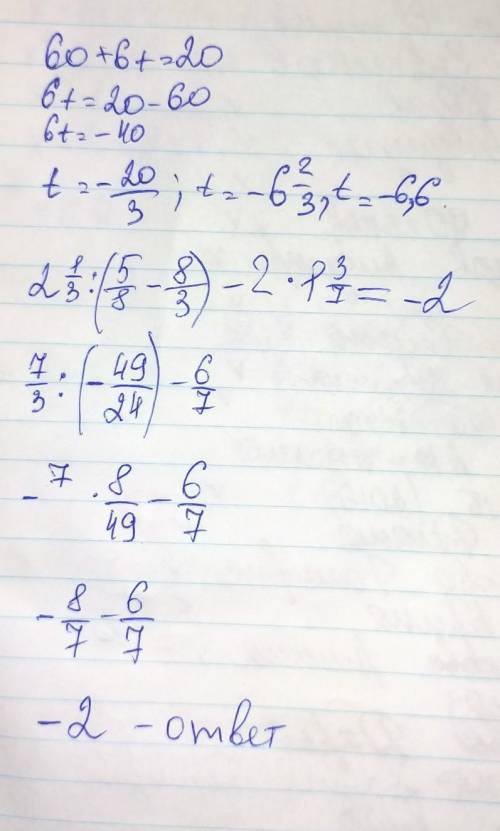 60+6t=20
6t=20-60
6t=-40
t=-20/3; t=-6 2/3, t=-6,6.
2 1/3:(5/8-8/3)-2·1 3/7=-2
7/3:(-49/24)-6/7
-7·8/49-6/7
-8/7-6/7
-2 - ответ